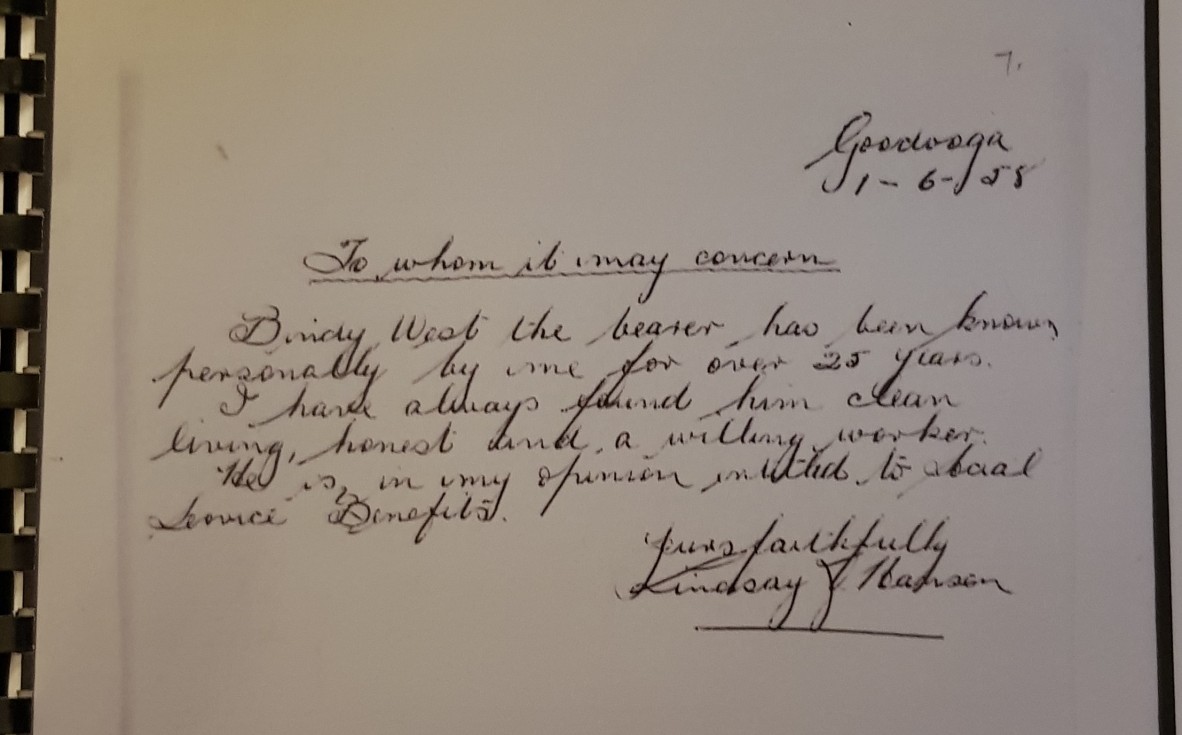 7.
Goodooga
1-6-58
To whom it may concern
Bindy West the bearer has been known
personally by me for over 25 years.
I have always found him clean
living, honest and a willing worker.
He is in my opinion intitled to social
Service Benefits.
Yours faithfully
Lindsay J